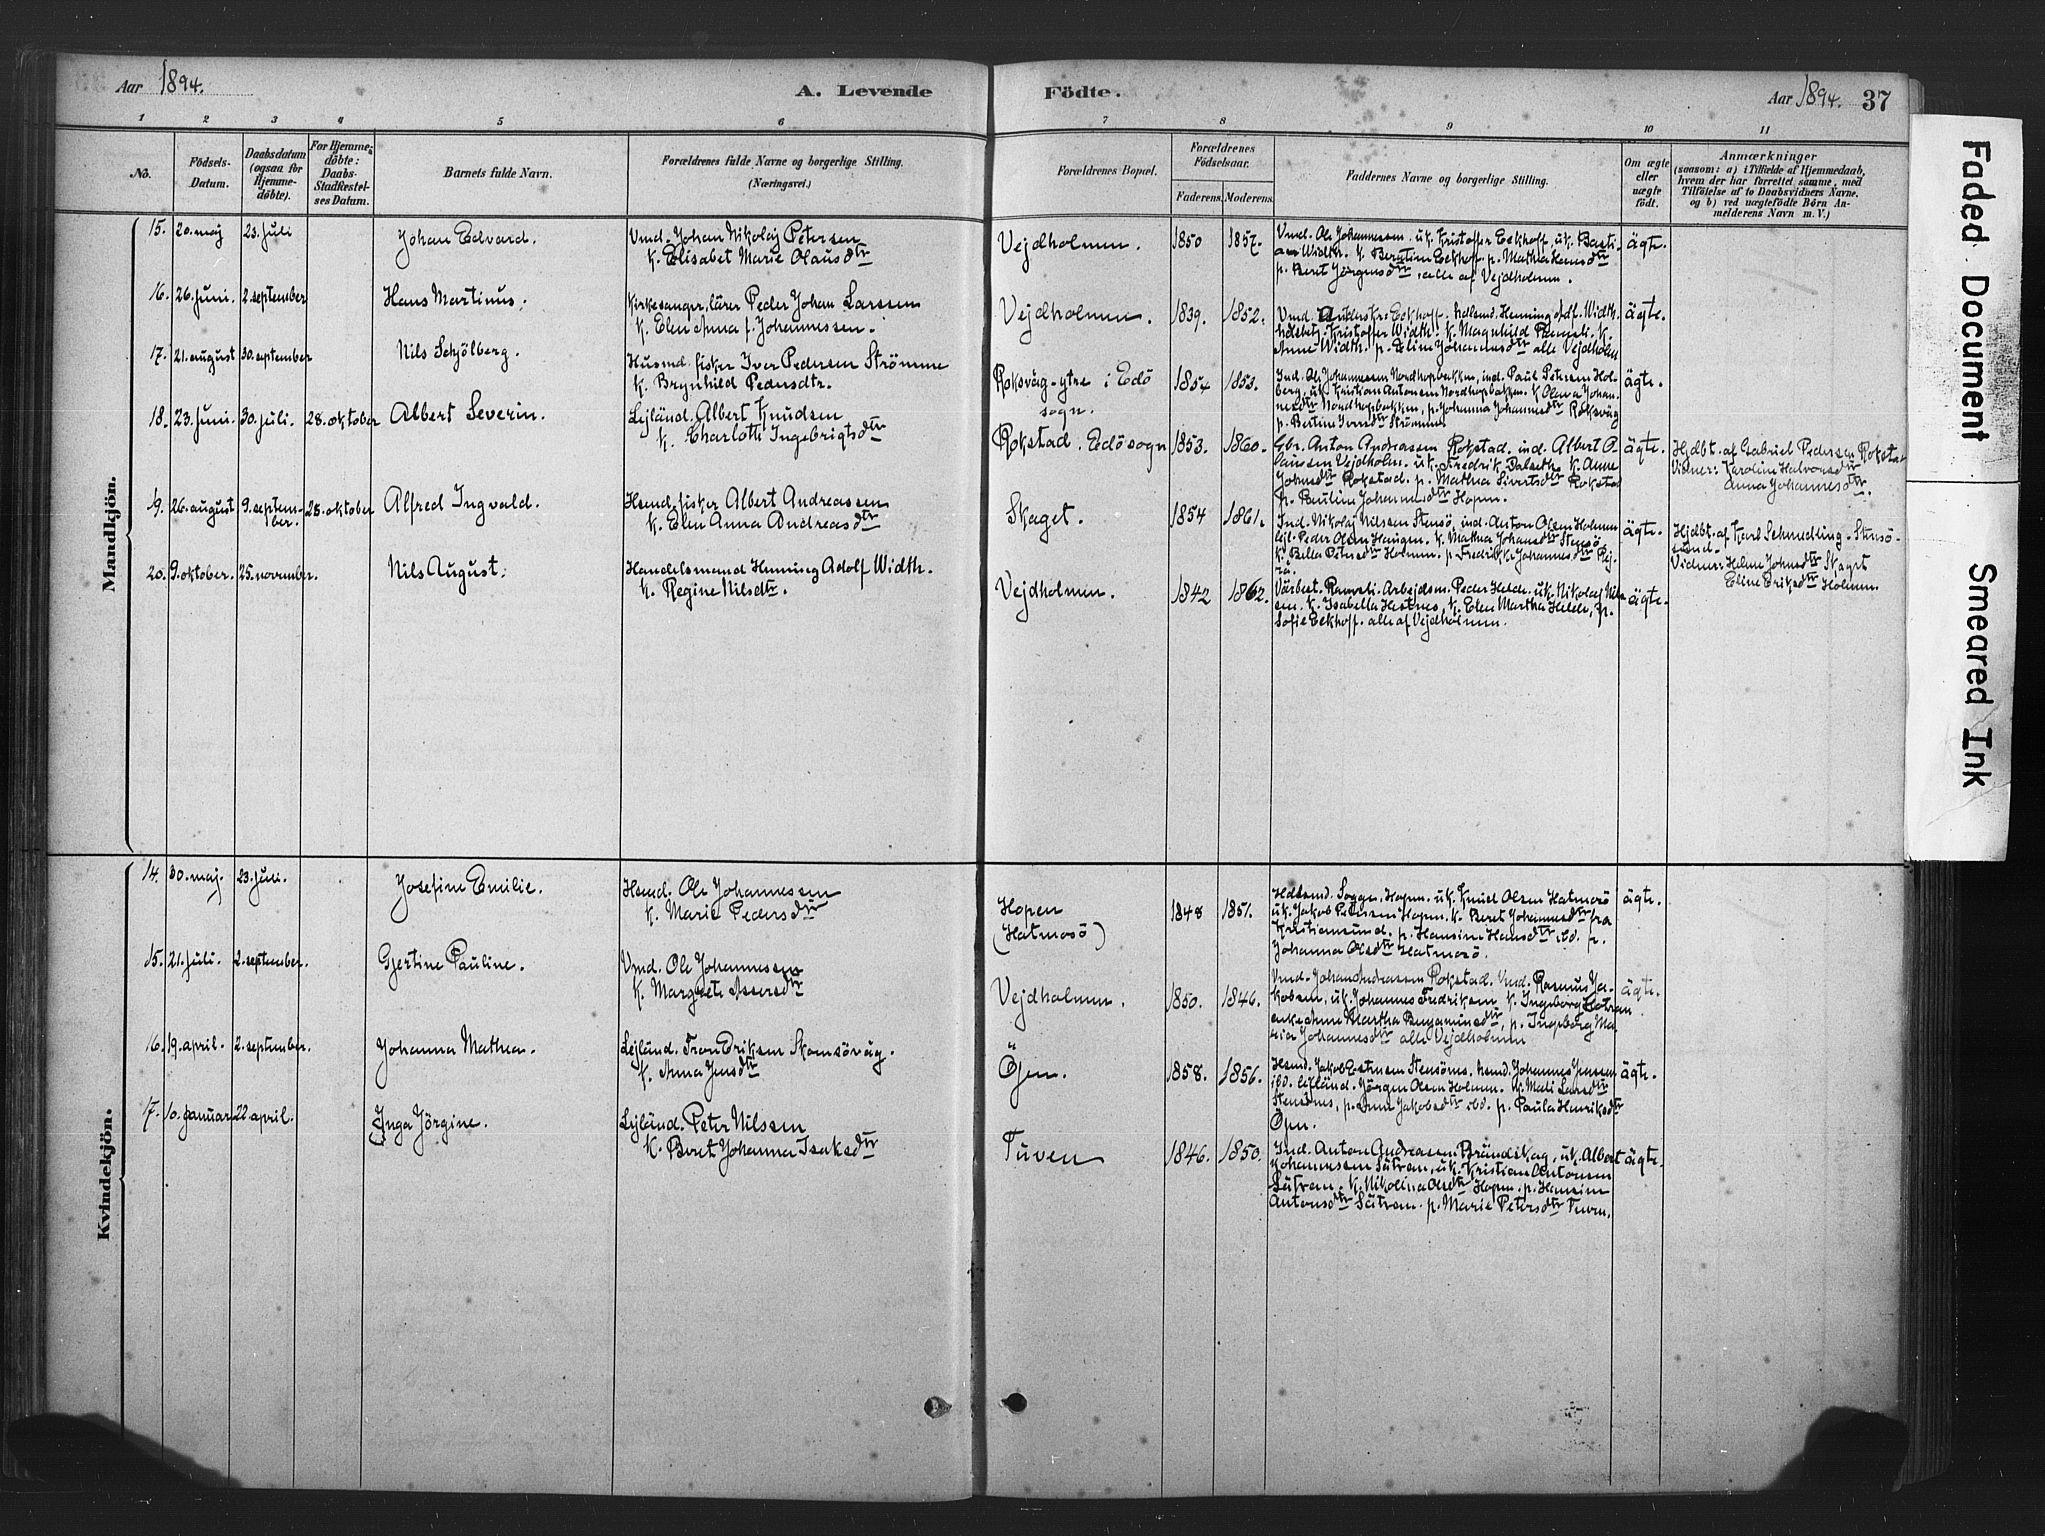 Aar 1894. A. Levende Födte. Aar 1894. 37
1 2 3 4 5 6 7 8 9 10 11
No.
Födsels-Datum.
Daabsdatum (ogsaa for Hjemmedöbte).
For Hjemmedöbte: Daabs-Stadfestelses Datum.
Barnets fulde Navn.
Forældrenes fulde Navne og borgerlige Stilling. (Næringsvei.)
Forældrenes Bopæl.
Forældrenes Födselsaar.
Faderens. Moderens.
Faddernes Navne og borgerlige Stilling.
Om ægte eller uægte födt.
Anmærkninger
(saasom: a) i Tilfælde af Hjemmedaab,
hvem der har forrettet samme, med
Tilföielse af to Daabsvidners Navne.
og b) ved uægtefödte Börn Anmelderens Navn m. V.)
Mandkjön.
15. 20. maj 23. juli Johan Edvard. Vmd. Johan Nikolaj Petersen
k. Elisabet Marie Olausdtr
Vejdholmen. 1850 1857. Vmd. Ole Johannessen. uk. Kristoffer Eckhoff. uk. Basti-
an Width. k. Berntine Eckhoff. p. Mathea Hansdtr
p. Beret Jörgensdtr, alle af Vejdholmen.
ägte.
16. 26. juni. 2. september Hans Martinus. Kirkesanger, lärer Peder Johan Larssen
k. Elen Anna f. Johannessen.
Vejdholmen. 1839. 1852. Vmd. Eckhoff. hdlsmd. Henning Adf. Width.
Kristoffer Width. k. Magnhild Ranveli. k.
Anne Width. p. Eline Johannesdtr alle Vejdholm
ägte.
17. 21. august 30. september Nils Schjölberg. Husmd. fisker Iver Pedersen Strömme
k. Brynhild Pedersdtr.
Roksvåg-ytre i Edö
sogn. 1854 1853. Ind. Ole Johannessen Nordhopbakken, ind. Paul Petersen Hol-
berg, uk. Kristian Antonsen Nordhopbakken. k. Olava Johan-
nesdtr Nordhopbakken, p. Johanna Johannesdtr Roksvåg
p. Bertine Iversdtr Strömme.
ägte.
18. 23. juni. 30. juli. 28. oktober Albert Severin. Lejländ. Albert Knudsen
k. Charlotte Ingebrigtsdtr
Rokstad. Edösogn 1853. 1860. Gbr. Anton Andreassen Rokstad. ind. Albert O-
laussen Vejdholm. uk. Fredrik Dalseth. k. Anne
Johnsdtr Rokstad. p. Mathea Sivertsdtr Rokstad
p. Pauline Johannesdtr Hopen.
ägte. Hjdbt. af Gabriel Pedersen Rokstad
Vidner: Karoline Halvorsdtr
Anna Johannesdtr.
19. 26. august 9. septem-
ber. 28. oktober Alfred Ingvald. Hsmd. fisker Albert Andreassen
k. Elen Anna Andreasdtr
Skaget. 1854 1861. Ind. Nikolaj Nilssen Stensö, ind. Anton Olsen Holmen
lejl. Peder Olsen Haugen. k. Mathea Johansdtr Stensö
k. Bella Petersdtr Holmen. p. Fredrikke Johannesdtr
ägte. Hjdbt. af Karl Schmedling. Stensö-
sund.
Vidner: Helene Johnsdtr Skaget
Eline Eriksdtr Holmen.
20. 9. oktober. 25. november. Nils August. Handelsmand Henning Adolf Width.
k. Regine Nilsdtr.
Vejdholmen. 1842 1862. Värbest. Ranveli. Arbejdsm. Peder Helde. uk. Nikolaj Nils-
sen. k. Isabella Hestnes, k. Elen Martha Helde, p.
Sofie Eckhoff. alle af Vejdholmen.
ägte.
Kvindekjön.
14. 30. maj. 23. juli. Josefine Emilie. Hsmd. Ole Johannessen
k. Marie Pedersdtr
Hopen
(Hatmosö) 1848 1851. Hdlsmd. Sogge, Hopen. uk. Knud Olsen Hatmosö
uk. Jakob Petersen Hopen. k. Beret Johannesdtr fra
Kristiansund. p. Hansine Hansdtr ibd. p.
Johanna Olsdtr Hatmosö.
ägte.
15. 21. juli. 2. september. Gjertine Pauline. Vmd. Ole Johannessen
k. Margrete Assersdtr
Vejdholmen. 1850. 1846. Vmd. Johan Andreassen Rokstad. Vmd. Rasmus Ja-
kobsen, uk. Johannes Fredriksen k. Ingeborg
enke Anne Martha Benjaminsdtr, p. Ingeborg Ma-
ria Johannesdtr alle Vejdholmen
ägte.
16. 19. april. 2. september. Johanna Mathea. Lejländ. Tron Eriksen Skomsövåg.
k. Anna Jensdtr
Öjen. 1858. 1856. Hsmd. Jakob Estensen Stensönes, hsmd. Johannes Jenssen
ibd. lejländ. Jörgen Olsen Holmen. k. Mali Larsdtr
Stensönes, p. Anne Jakobsdtr ibd. p. Paula Henriksdtr
Öjen.
ägte.
17. 10. januar 22 april. Inga Jörgine. Lejländ. Peter Nilssen
k. Beret Johanna Isaksdtr
Tuven 1846. 1850. Ind. Anton Andreassen Brandskag, uk. Albert
Johannessen Sätran, uk. Kristian Antonsen
Sätran. k. Nikolina Olsdtr Hopen. p. Hansine
Antonsdtr Sätran. p. Marie Petersdtr Tuven.
ägte.
Faded Document
Smeared Ink